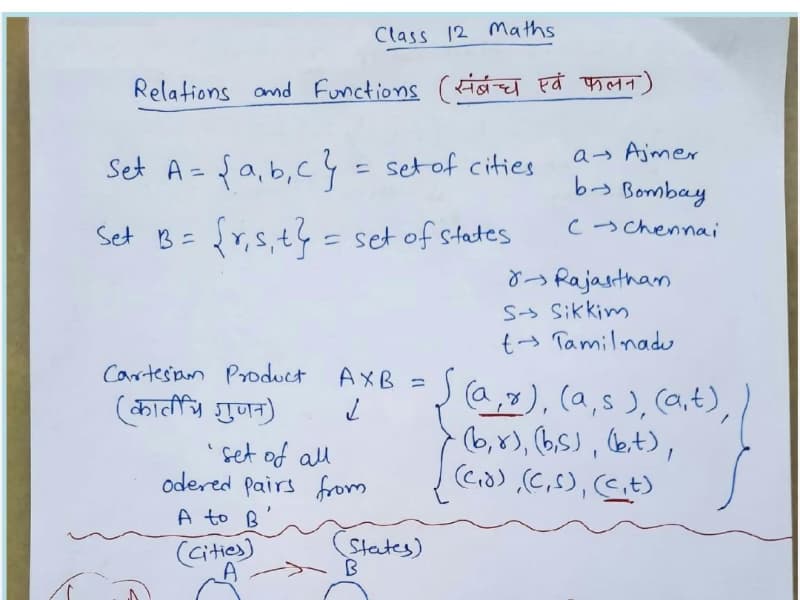 Class 12 Maths
Relations and Functions (संबंध एवं फलन)
Set A = {a, b, c} = set of cities
a → Ajmer
b → Bombay
c → Chennai
Set B = {r, s, t} = set of states
r → Rajasthan
s → Sikkim
t → Tamilnadu
Cartesian Product A×B = {(a, r), (a, s), (a, t),
(कार्तीय गुणन) ↓ (b, r), (b, s), (b, t),
(c, r), (c, s), (c, t)}
'set of all
odered pairs from
A to B'
(Cities) (States)
A → B